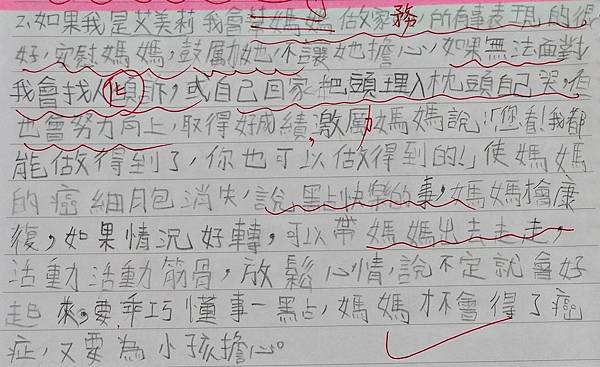 2.如果我是艾美莉我會幫媽媽做家務,所有事表現的很
好,安慰媽媽,鼓勵她,不讓她擔心,如果無法面對,
我會找人傾訴,或自己回家把頭埋入枕頭自己哭,我
也會努力向上,取得好成績,激勵媽媽說:「您看!我都
能做得到了,你也可以做得到的!」使媽媽
的癌細胞消失,說點快樂的事,媽媽擔康
復,如果情況好轉,可以帶媽媽出去走走,
活動活動筋骨,放鬆心情,說不定就會好
起來。要乖巧懂事一點,媽媽才不會得了癌
症,又要為小孩擔心。